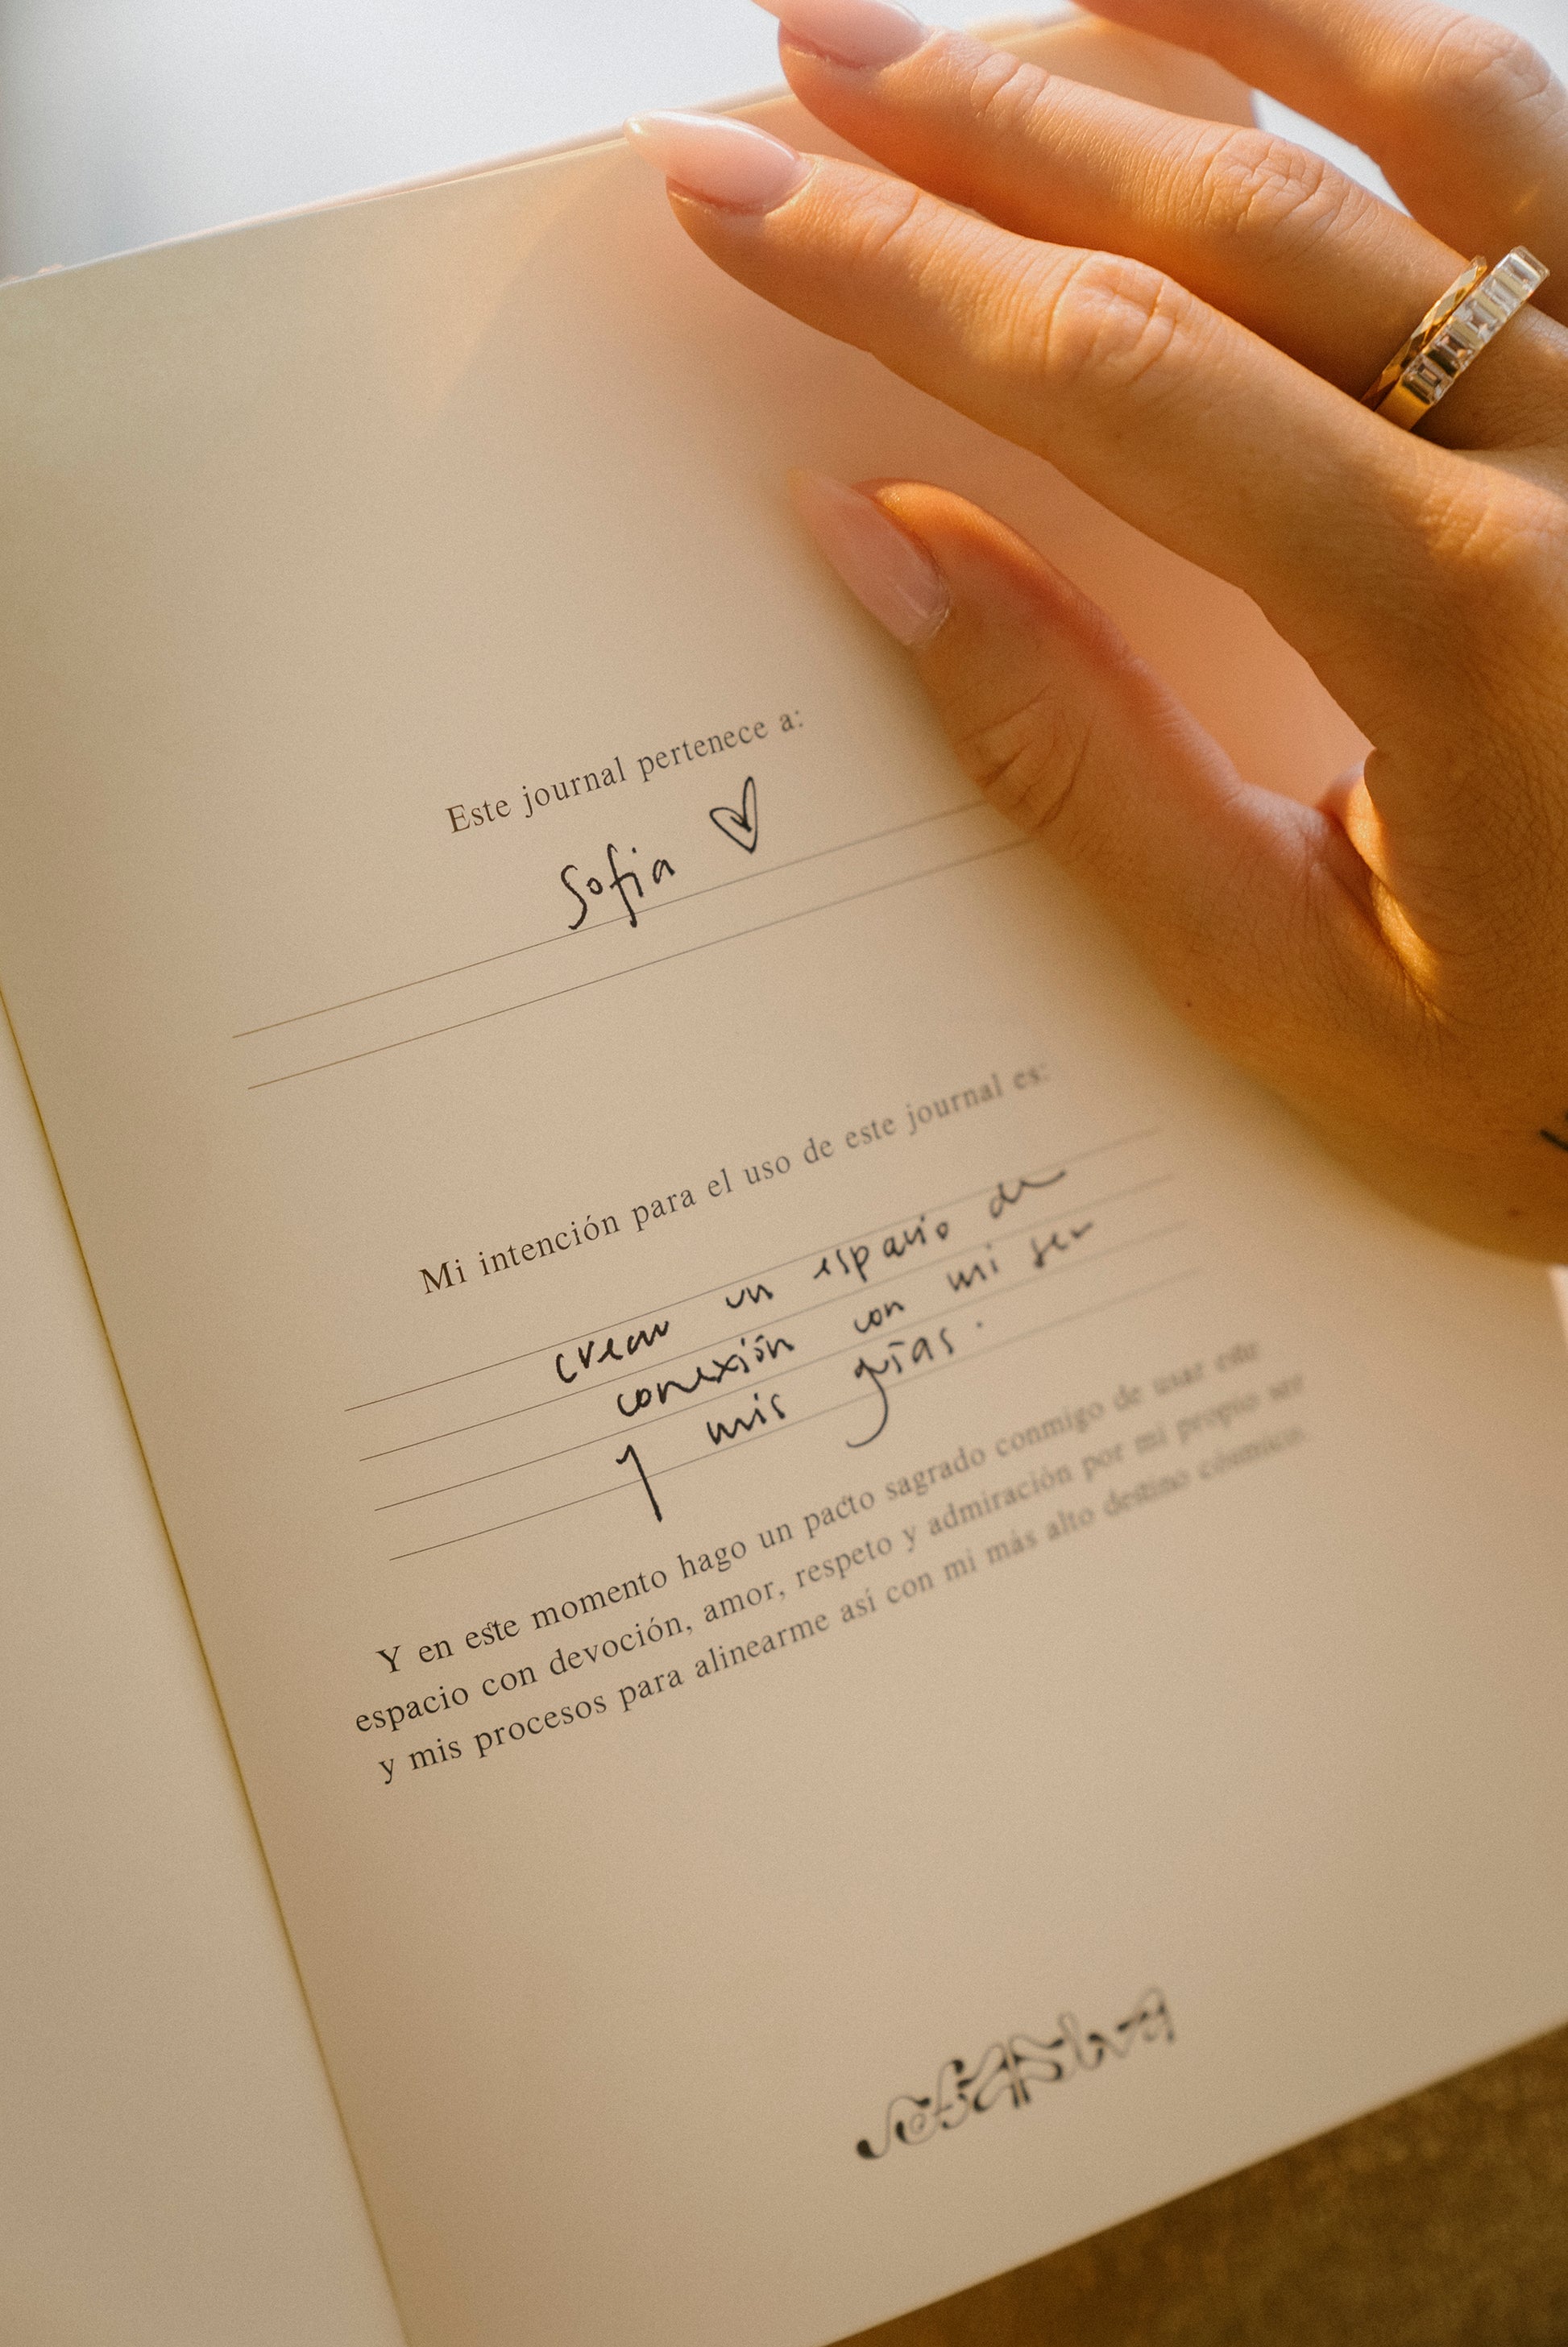 Este journal pertenece a:
Sofia ♡
Mi intención para el uso de este journal es:
crear un espacio de
conexión con mi ser
y mis guías.
Y en este momento hago un pacto sagrado conmigo de usar este
espacio con devoción, amor, respeto y admiración por mi propio ser
y mis procesos para alinearme así con mi más alto destino cósmico.